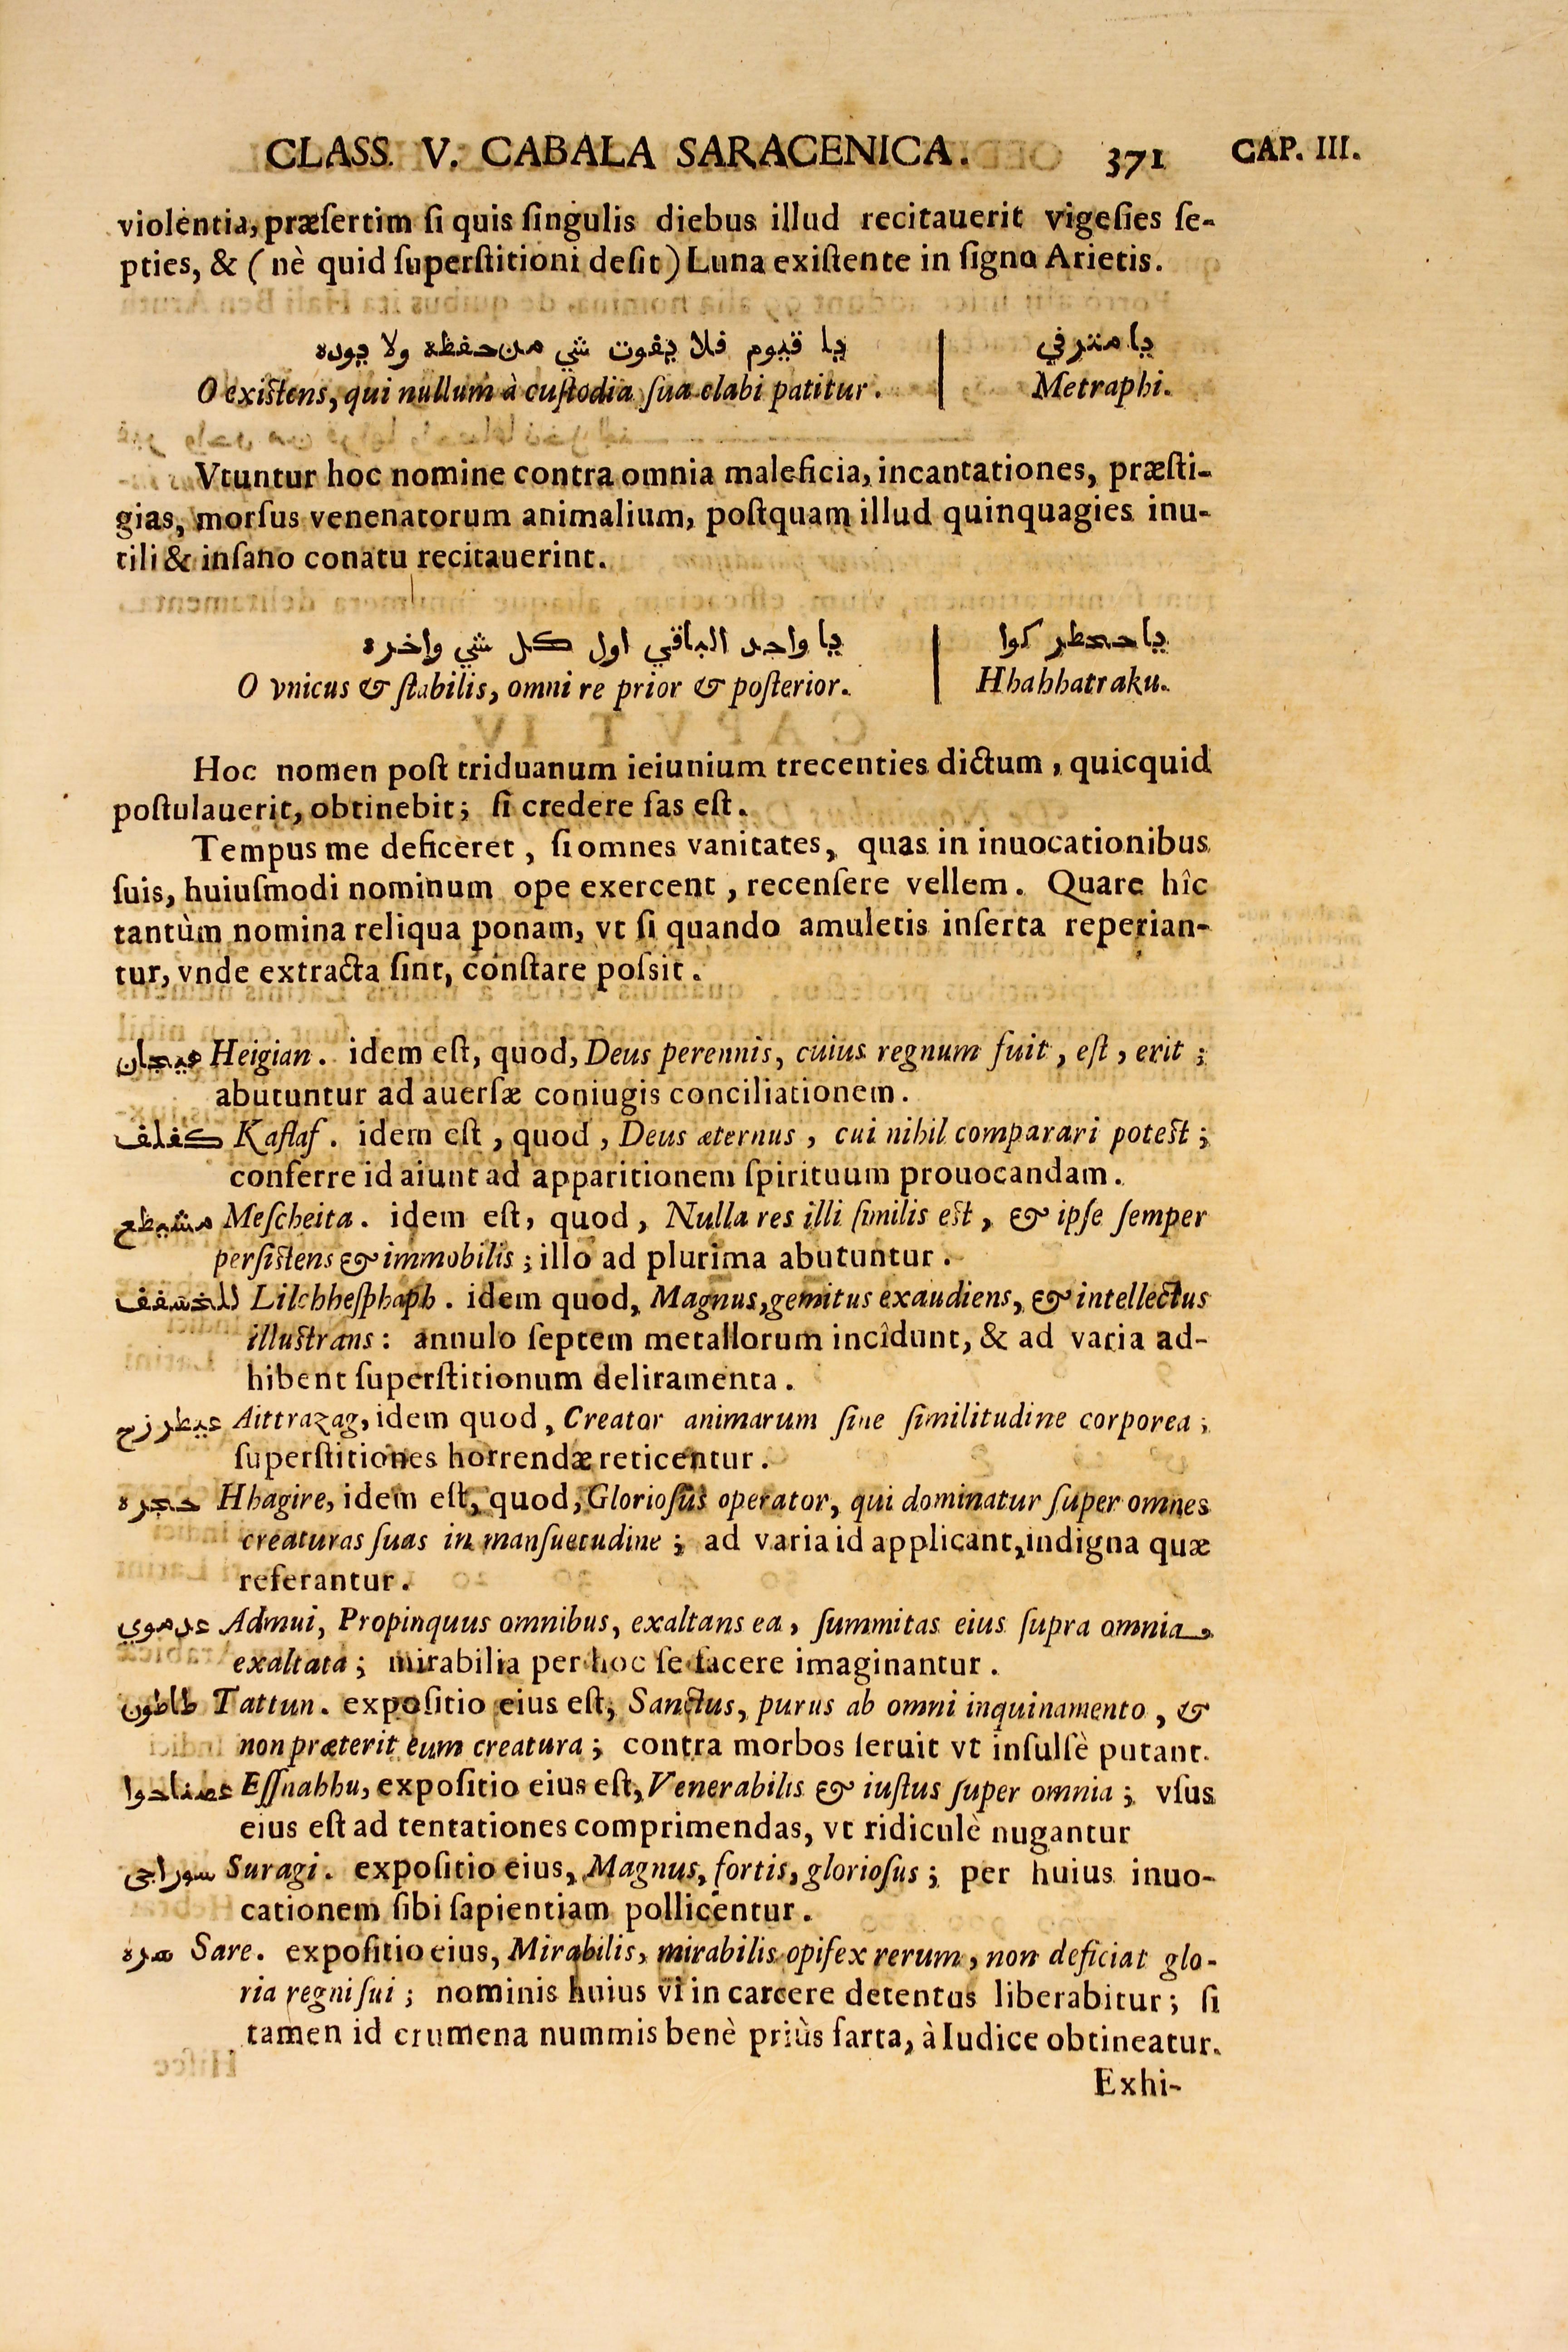 CLASS. V. CABALA SARACENICA. 371 CAP. III.
violentia, præſertim ſi quis ſingulis diebus illud recitauerit vigeſies ſe-
pties, & ( nè quid ſuperſtitioni deſit ) Luna exiſtente in ſigno Arietis.
يا مترفي | يا قيوم فلا يفوت شي من حفظه ولا يوده
O exiſtens, qui nullum à cuſtodia ſua elabi patitur. | Metraphi.
Vtuntur hoc nomine contra omnia maleficia, incantationes, præſti-
gias, morſus venenatorum animalium, poſtquam illud quinquagies inu-
tili & inſano conatu recitauerint.
يا ححطر كوا | يا واحد الباقي اول كل شي واخره
O vnicus & ſtabilis, omni re prior & poſterior. | Hhahhatraku.
Hoc nomen poſt triduanum ieiunium trecenties dictum, quicquid
poſtulauerit, obtinebit; ſi credere fas eſt.
Tempus me deficeret, ſi omnes vanitates, quas in inuocationibus
ſuis, huiuſmodi nominum ope exercent, recenſere vellem. Quare hîc
tantùm nomina reliqua ponam, vt ſi quando amuletis inſerta reperian-
tur, vnde extracta ſint, conſtare poſsit.
هيجان Heigian. idem eſt, quod, Deus perennis, cuius regnum fuit, eſt, erit;
abutuntur ad auerſæ coniugis conciliationem.
كفلف Kaflaf. idem eſt, quod, Deus æternus, cui nihil comparari poteſt;
conferre id aiunt ad apparitionem ſpirituum prouocandam.
مشيطع Meſcheita. idem eſt, quod, Nulla res illi ſimilis eſt, & ipſe ſemper
perſiſtens & immobilis; illo ad plurima abutuntur.
للخسفف Lilchheſphaph. idem quod, Magnus, gemitus exaudiens, & intellectus
illuſtrans: annulo ſeptem metallorum incîdunt, & ad varia ad-
hibent ſuperſtitionum deliramenta.
عيطرزج Aittrazag, idem quod, Creator animarum ſine ſimilitudine corporea;
ſuperſtitiones horrendæ reticentur.
حجره Hhagire, idem eſt, quod, Glorioſus operator, qui dominatur ſuper omnes
creaturas ſuas in manſuetudine; ad varia id applicant, indigna quæ
referantur.
عدموي Admui, Propinquus omnibus, exaltans ea, ſummitas eius ſupra omnia
exaltata; mirabilia per hoc ſe facere imaginantur.
طاطون Tattun. expoſitio eius eſt, Sanctus, purus ab omni inquinamento, &
non præterit eum creatura; contra morbos ſeruit vt inſulſè putant.
عصناحوا Eſſnahhu, expoſitio eius eſt, Venerabilis & iuſtus ſuper omnia; vſus
eius eſt ad tentationes comprimendas, vt ridiculè nugantur
سوراجي Suragi. expoſitio eius, Magnus, fortis, glorioſus; per huius inuo-
cationem ſibi ſapientiam pollicentur.
سره Sare. expoſitio eius, Mirabilis, mirabilis opifex rerum, non deficiat glo-
ria regni ſui; nominis huius vi in carcere detentus liberabitur; ſi
tamen id crumena nummis benè priùs farta, à Iudice obtineatur.
Exhi-